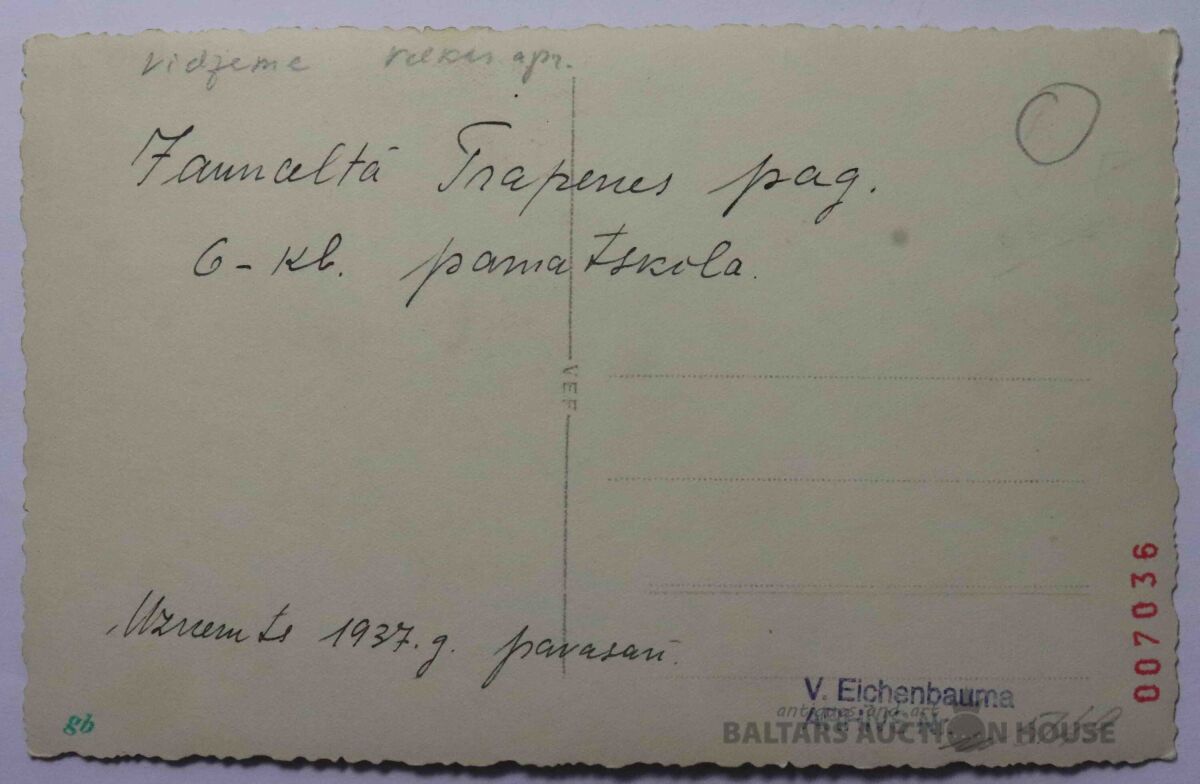 Vidzeme Valkas apr.
Jaunceltā Trapenes pag.
6-kl. pamatskola.
VEF
Uzņemts 1937.g. pavasarī.
007036
V. Eichenbauma
antiques and art
BALTARS AUCTION HOUSE
gb